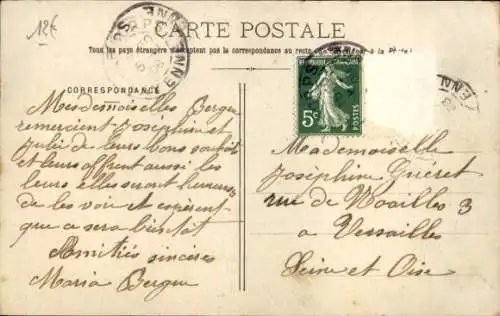 12€
CARTE POSTALE
Tous les pays étrangers n'acceptent pas la correspondance au recto
CORRESPONDANCE
RÉPUBLIQUE FRANÇAISE
5c
POSTES
Mesdemoiselles Bergue
remercient Joséphine et
Julie de leurs bons souhaits
et leurs offrent aussi les
leurs elles seront heureuses
de les voir et espèrent
que ce sera bientôt
Amitiés sincères
Maria Bergue
Mademoiselle
Joséphine Guéret
rue de Noailles 3
a Versailles
Seine et Oise